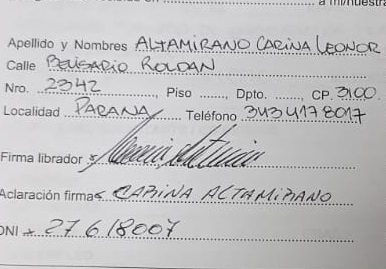 a mi/nuestra
Apellido y Nombres ALTAMIRANO CARINA LEONOR
Calle BELISARIO ROLDAN
Nro. 2342 Piso ...... Dpto. ...... CP. 3100
Localidad PARANA Teléfono 3434178017
Firma librador
Aclaración firma CARINA ALTAMIRANO
DNI 27618007